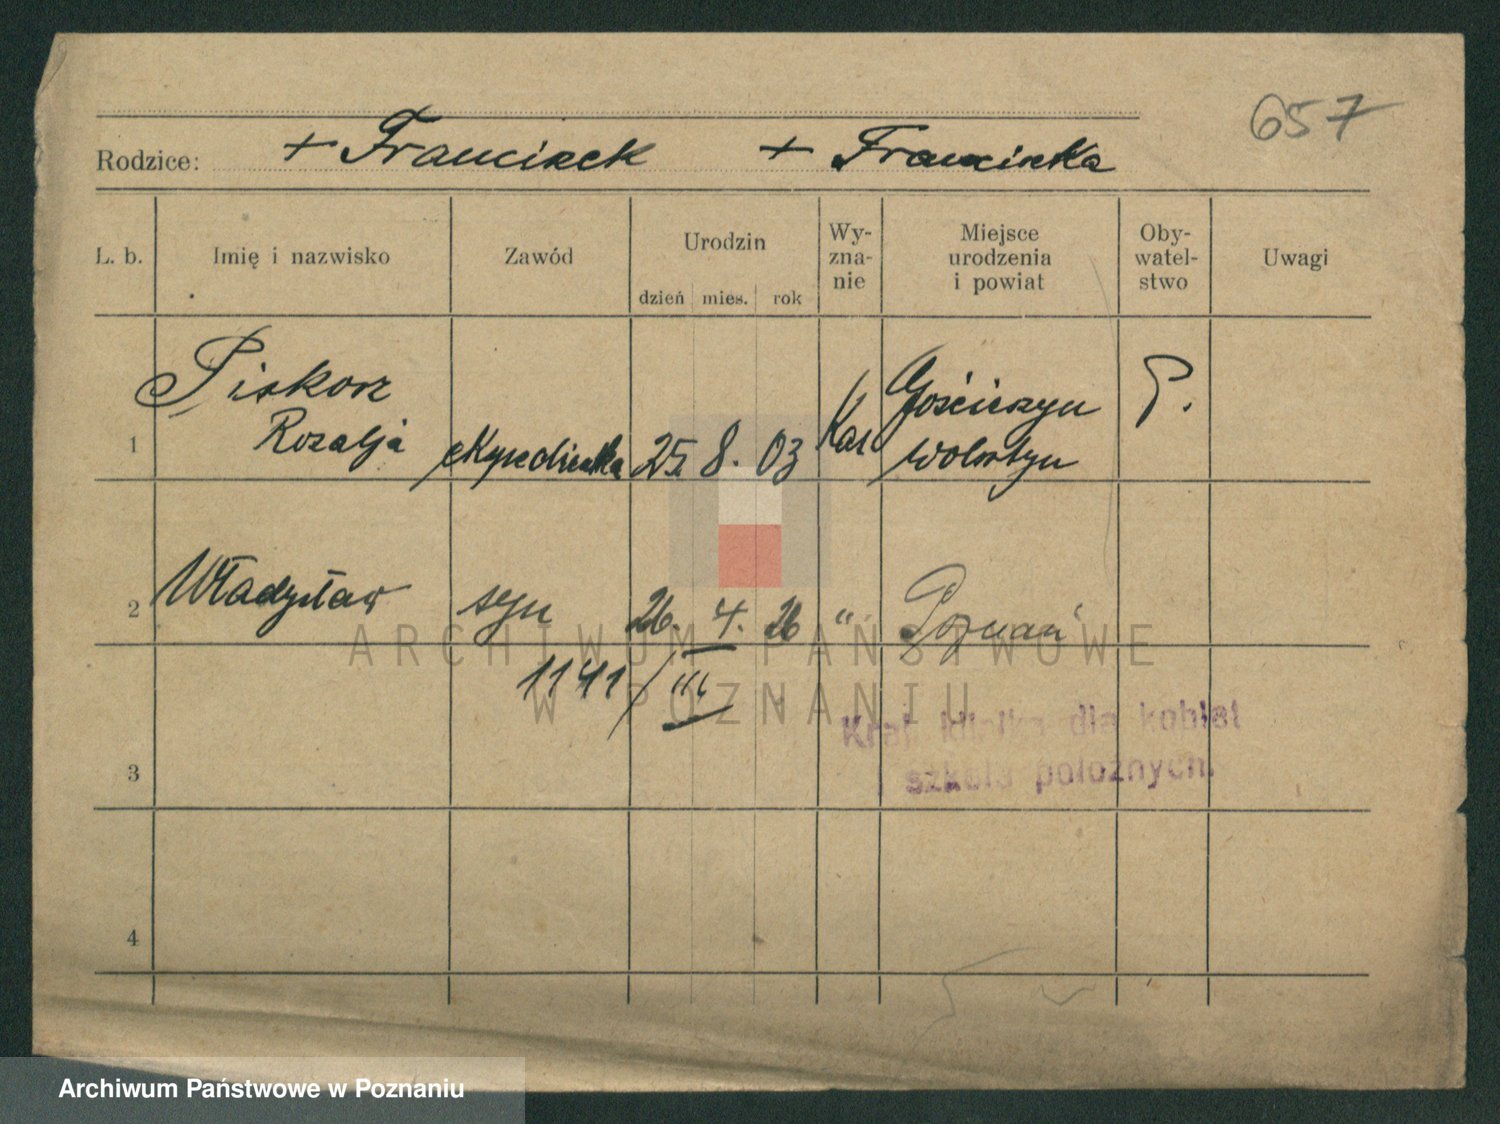 657
Rodzice: + Franciszek + Franciszka
L. b. Imię i nazwisko Zawód Urodzin Wy-zna-nie Miejsce urodzenia i powiat Oby-watel-stwo Uwagi
dzień mies. rok
Piskorz Gościeszyn P.
1 Rozalja ekspedientka 25. 8. 03 Kat Wolsztyn
2 Władysław syn 26. 4. 26 " Poznań
1141/III
ARCHIWUM PAŃSTWOWE
W POZNANIU
Kraj. klinika dla kobiet
i szkoła położnych.
3
4
Archiwum Państwowe w Poznaniu